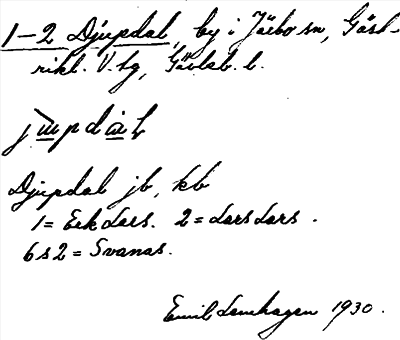 1–2 Djupdal, by i Järbo sn, Gäst-
rikl. V. tg, Gävleb. l.
jupdal
Djupdal jb, kb
1 = Erk Lars. 2 = Lars Lars.
6 s 2 = Svanas.
Emil Lenhagen 1930.